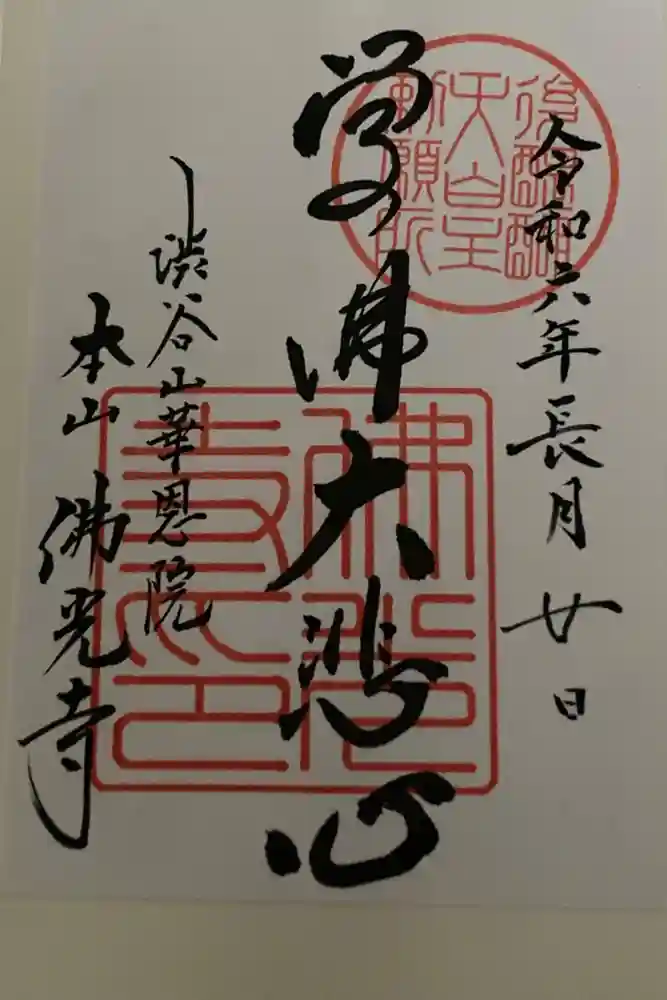 令和六年長月廿日
後醍醐
天皇
勅願所
学佛大悲心
渋谷山華恩院
本山佛光寺